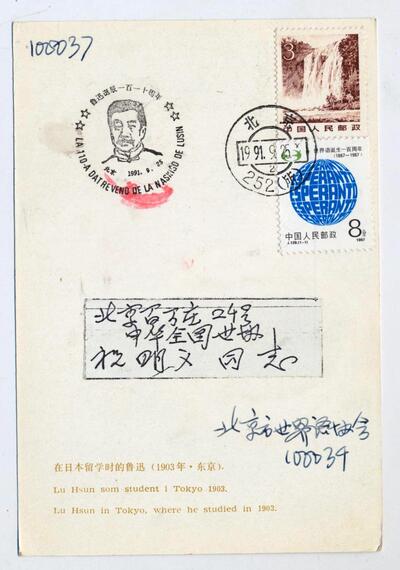 100037
3分
中国人民邮政
☆☆鲁迅诞辰一百一十周年☆☆
LA 110-A DATREVENO DE LA NASKIĜO DE LUSIN
北京 1991.9.25
北京
1991.9.25
252(版)
世界语诞生一百周年
(1887-1987)
ESPERANTO
中国人民邮政
8分
J.139.(1-1)
1987
北京百万庄24号
中华全国世协
祝明义同志
北京市世界语协会
100034
在日本留学时的鲁迅（1903年·东京）.
Lu Hsun som student i Tokyo 1903.
Lu Hsun in Tokyo, where he studied in 1903.